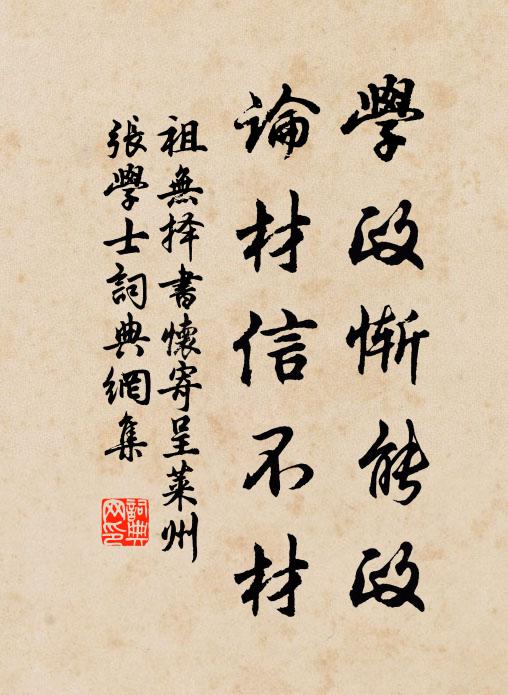 學政慚能政
論材信不材
祖無择書懷寄呈萊州
張學士詞典網集
詞典
网印